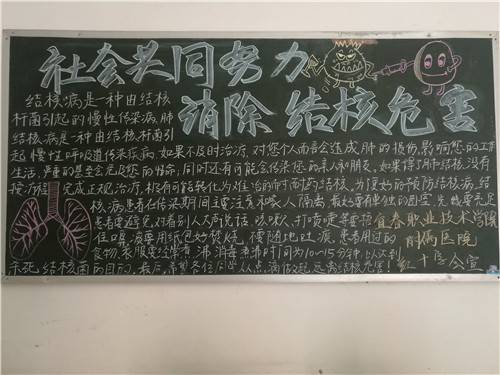 社会共同努力
消除结核危害
结核病是一种由结核
杆菌引起的慢性传染病,肺
结核病是一种由结核杆菌引
起慢性呼吸道传染疾病,如果不及时治疗,对您个人而言会造成肺的损伤,影响您的工作
生活,严重的甚至会危及您的生命,同时还有可能会传染您的亲人和朋友,如果得了肺结核没有
按疗程完成正规治疗,极有可能转化为难治的耐药结核,为更好的预防结核病,结
核病患者在传染期间主要注意和家人隔离
患者要避免对着别人大声说话、咳嗽、打喷嚏等
宜春职业技术学院
住口鼻,痰要用纸包好焚烧,不随地吐痰,患者用过的
附属医院
食物、衣服煮沸消毒,煮沸时间为10~15分钟,以达到
杀死结核菌的目的
远离结核危害!
红十字会宣